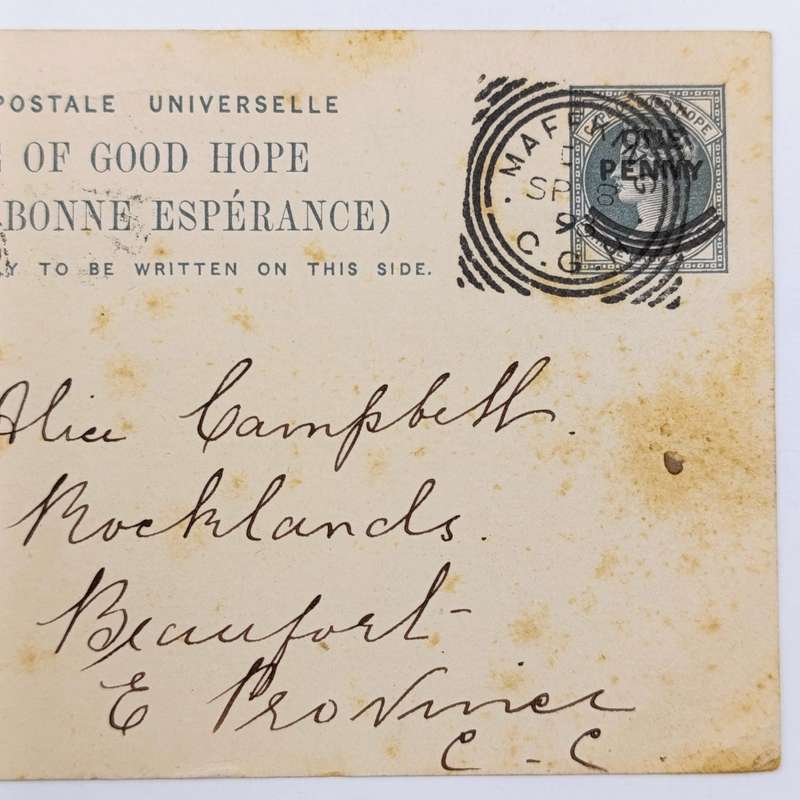 POSTALE UNIVERSELLE
OF GOOD HOPE
BONNE ESPÉRANCE)
Y TO BE WRITTEN ON THIS SIDE.
CAPE OF GOOD HOPE
ONE
PENNY
SP 8
C.G.
Alice Campbell.
Rocklands.
Beaufort
E Province
C - C